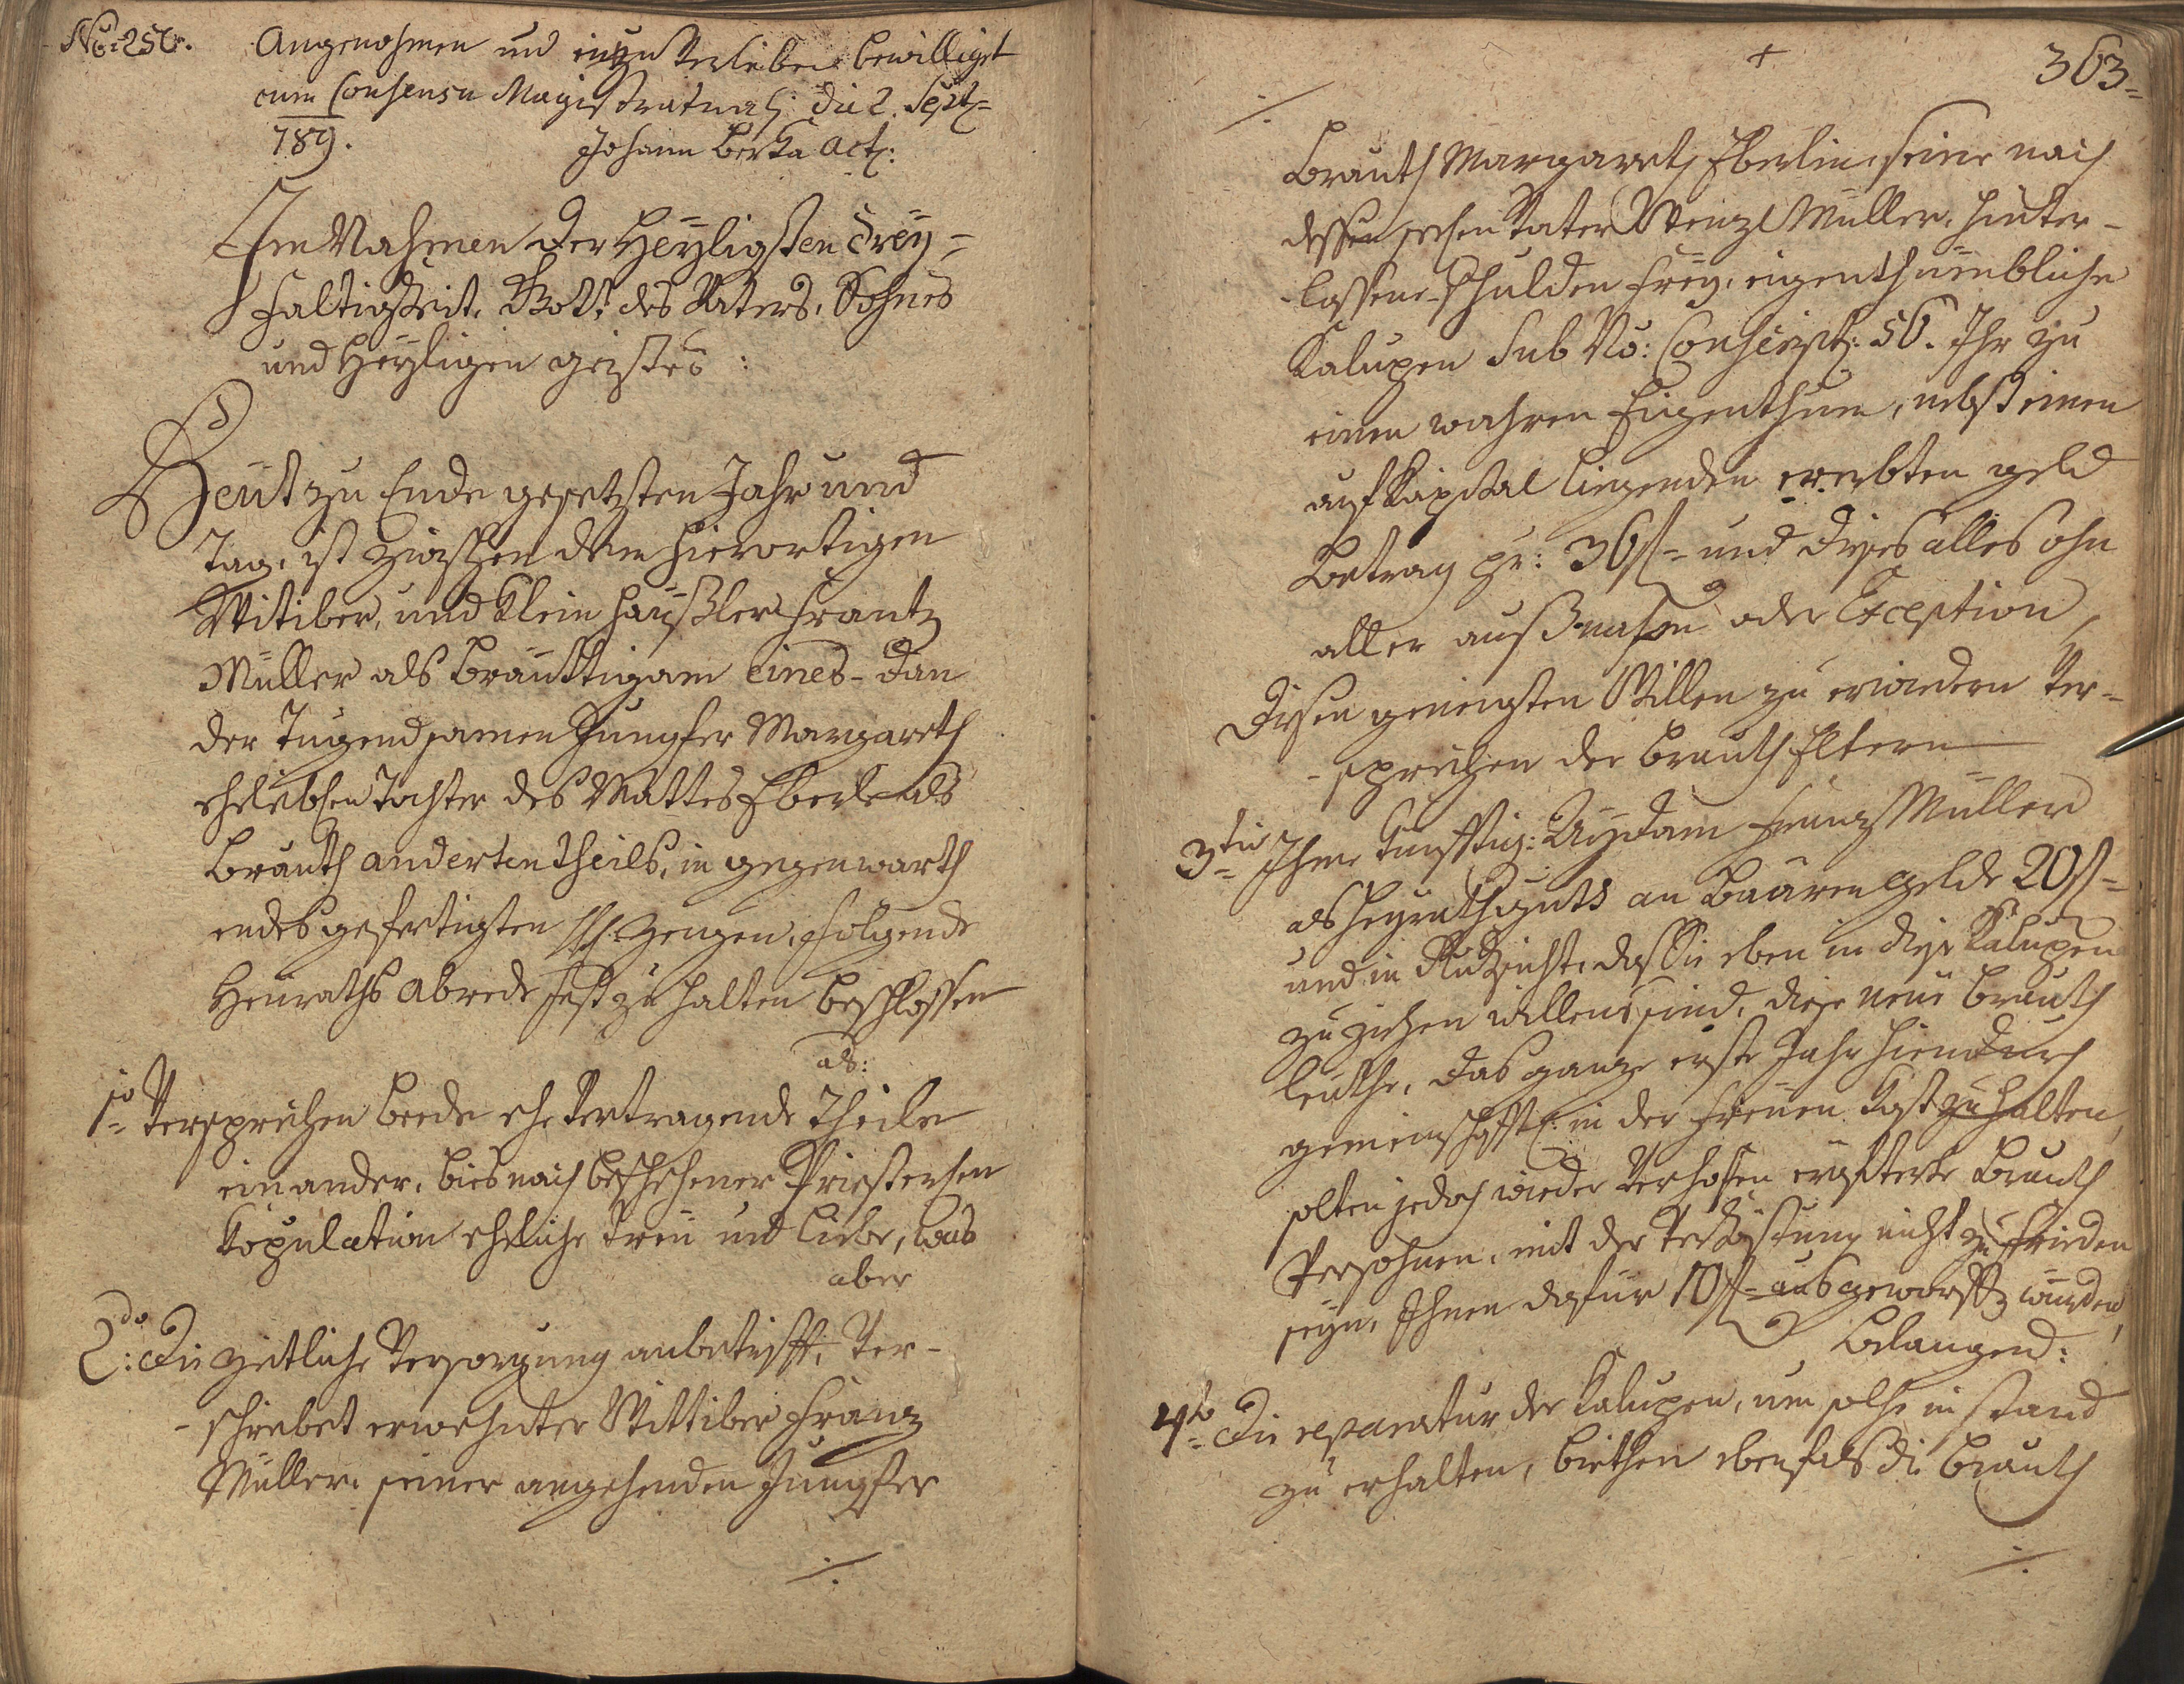 No: 256.
Angenohmen und einzuverleiben bewilliget
cum Consensu Magistratuali die 2. Sept:
789.
Johann Berka Act:
Im Nahmen der Heyligsten Drey=
faltigkeit, Gott des Vaters, Sohnes
und Heyligen geistes:
Heut zu Ende gesetzten Jahr und
Tag, ist zwischen dem hierortigen
Wittiber, und Klein Häußler Frantz
Müller als Bräuttigam eines- dan
der Tugendsamen Jungfer Margareth
eheleiblichen Tochter des Mattes Eberle als
Brauth anderten theils, in gegenwarth
endes gefertigten H: H: Zeugen, folgende
Heuraths Abrede fest zu halten beschlossen
als:
1o= Versprechen beede ehe Vertragende Theile
einander, bies nach beschehener Priesterlichen
Kopulation eheliche treu und Liebe, was
aber
2do: Die zeitliche Versorgung anbetrifft, Ver-
-schreibet erwehnter Wittiber Franz
Müller, seiner angehenden Jungfer
./.
+
363=
./.
Brauth Margareth Eberlin, seine nach
dessen Vater Wenzl Müller, hinter-
-lassene schulden frey, eigenthümbliche
Kalupen Sub No: Conscript: 56. Ihr zu
einen wahren Eigenthum, nebst einen
auf Kapital liegenden ererbten geld
Betrag pr: 36 f= und dieses alles ohn
aller außnahm oder Exception,
Diesen geneigten Willen zu erwiedern Ver=
-sprechen der Brauth Eltern
3tio= Ihme künfftig: Aydam Franz Müller
als Heyrathsgutt an baaren gelde 20 f=
und in Rücksicht, daß Sie eben in diese Kalupen
zu ziehen willens sind, diese neue Brauth
leuthe, das ganze erste Jahr hiendurch
gemeinschafftl: in der freyen Kost zu halten,
solten jedoch wieder Verhoffen ersterte Brauth
Persohnen, mit der Verköstung nicht zu frieden
seyn, Ihnen dafür 10 f= ausgeworffen würden,
Belangend:
4to= Die reparatur der Kalupen, um solche in stand
zu erhalten, biethen ebenfals die Brauth
./.